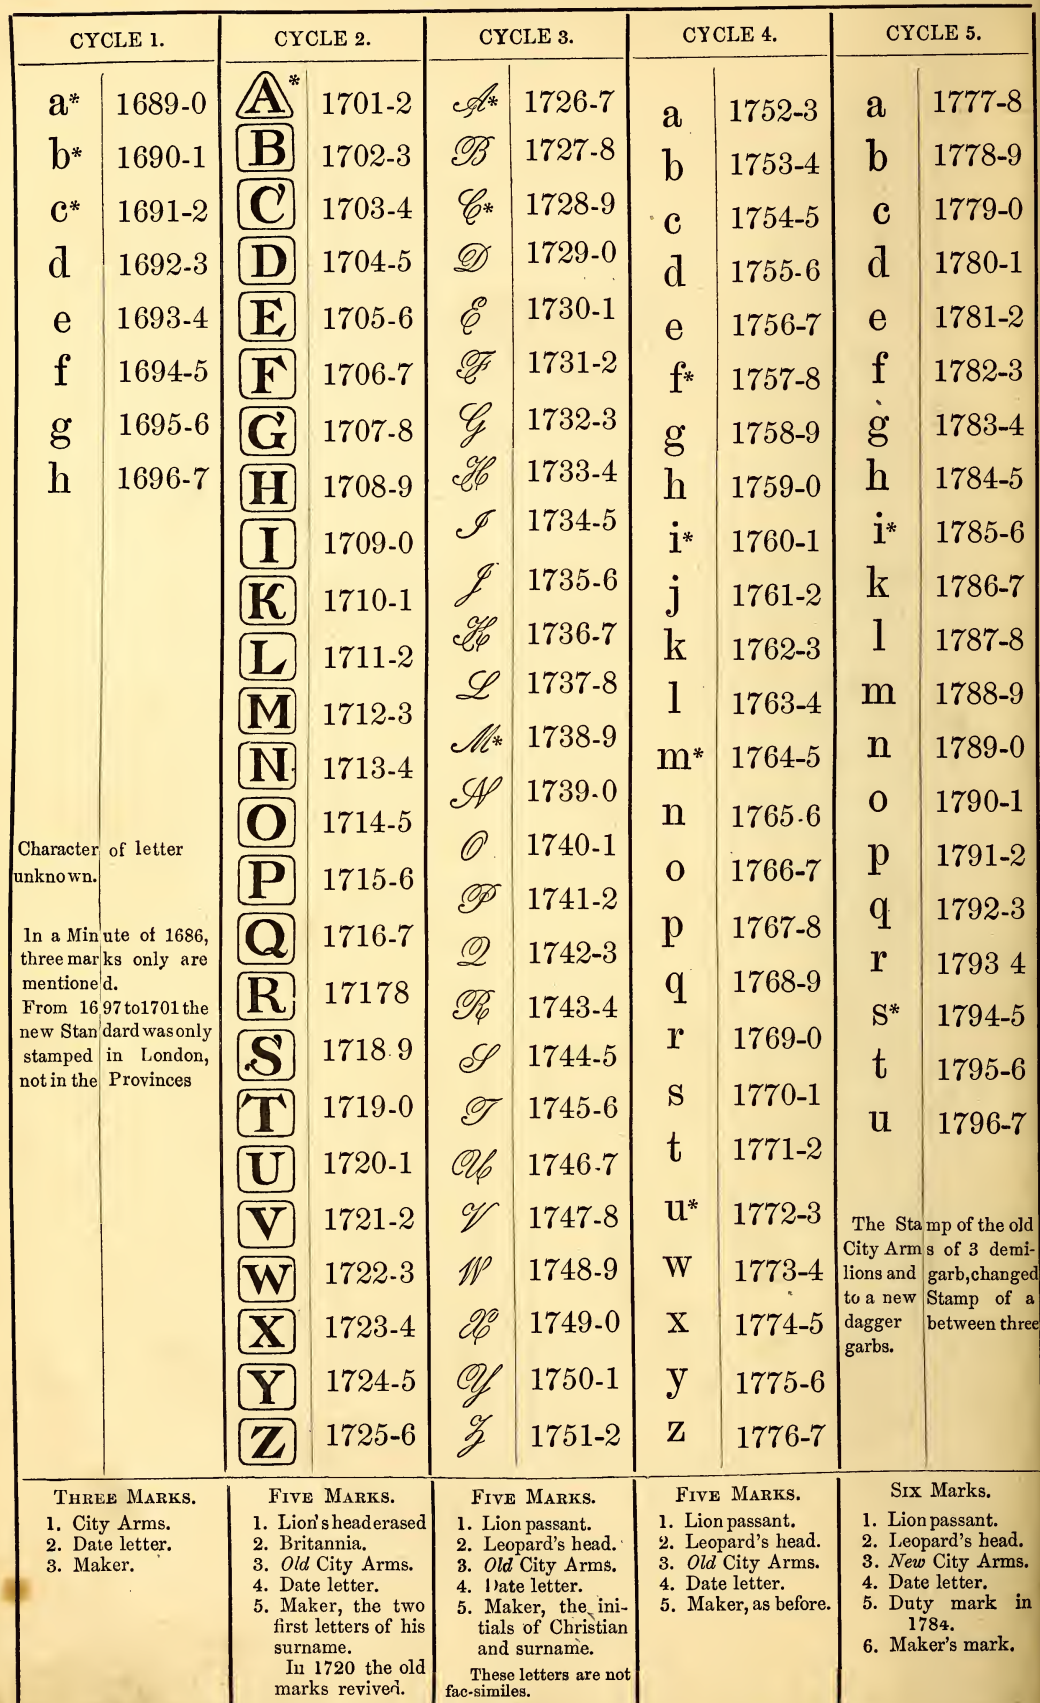 CYCLE 1.
a* 1689-0
b* 1690-1
c* 1691-2
d 1692-3
e 1693-4
f 1694-5
g 1695-6
h 1696-7
Character of letter
unknown.
In a Minute of 1686,
three marks only are
mentioned.
From 1697 to 1701 the
new Standard was only
stamped in London,
not in the Provinces
THREE MARKS.
1. City Arms.
2. Date letter.
3. Maker.
CYCLE 2.
A* 1701-2
B 1702-3
C 1703-4
D 1704-5
E 1705-6
F 1706-7
G 1707-8
H 1708-9
I 1709-0
K 1710-1
L 1711-2
M 1712-3
N 1713-4
O 1714-5
P 1715-6
Q 1716-7
R 17178
S 1718 9
T 1719-0
U 1720-1
V 1721-2
W 1722-3
X 1723-4
Y 1724-5
Z 1725-6
FIVE MARKS.
1. Lion's head erased
2. Britannia.
3. Old City Arms.
4. Date letter.
5. Maker, the two
first letters of his
surname.
In 1720 the old
marks revived.
CYCLE 3.
A* 1726-7
B 1727-8
C* 1728-9
D 1729-0
E 1730-1
F 1731-2
G 1732-3
H 1733-4
I 1734-5
J 1735-6
K 1736-7
L 1737-8
M* 1738-9
N 1739-0
O 1740-1
P 1741-2
Q 1742-3
R 1743-4
S 1744-5
T 1745-6
U 1746-7
V 1747-8
W 1748-9
X 1749-0
Y 1750-1
Z 1751-2
FIVE MARKS.
1. Lion passant.
2. Leopard's head.
3. Old City Arms.
4. Date letter.
5. Maker, the ini-
tials of Christian
and surname.
These letters are not
fac-similes.
CYCLE 4.
a 1752-3
b 1753-4
c 1754-5
d 1755-6
e 1756-7
f* 1757-8
g 1758-9
h 1759-0
i* 1760-1
j 1761-2
k 1762-3
l 1763-4
m* 1764-5
n 1765-6
o 1766-7
p 1767-8
q 1768-9
r 1769-0
s 1770-1
t 1771-2
u* 1772-3
w 1773-4
x 1774-5
y 1775-6
z 1776-7
FIVE MARKS.
1. Lion passant.
2. Leopard's head.
3. Old City Arms.
4. Date letter.
5. Maker, as before.
CYCLE 5.
a 1777-8
b 1778-9
c 1779-0
d 1780-1
e 1781-2
f 1782-3
g 1783-4
h 1784-5
i* 1785-6
k 1786-7
l 1787-8
m 1788-9
n 1789-0
o 1790-1
p 1791-2
q 1792-3
r 1793 4
s* 1794-5
t 1795-6
u 1796-7
The Stamp of the old
City Arms of 3 demi-
lions and garb, changed
to a new Stamp of a
dagger between three
garbs.
SIX Marks.
1. Lion passant.
2. Leopard's head.
3. New City Arms.
4. Date letter.
5. Duty mark in
1784.
6. Maker's mark.